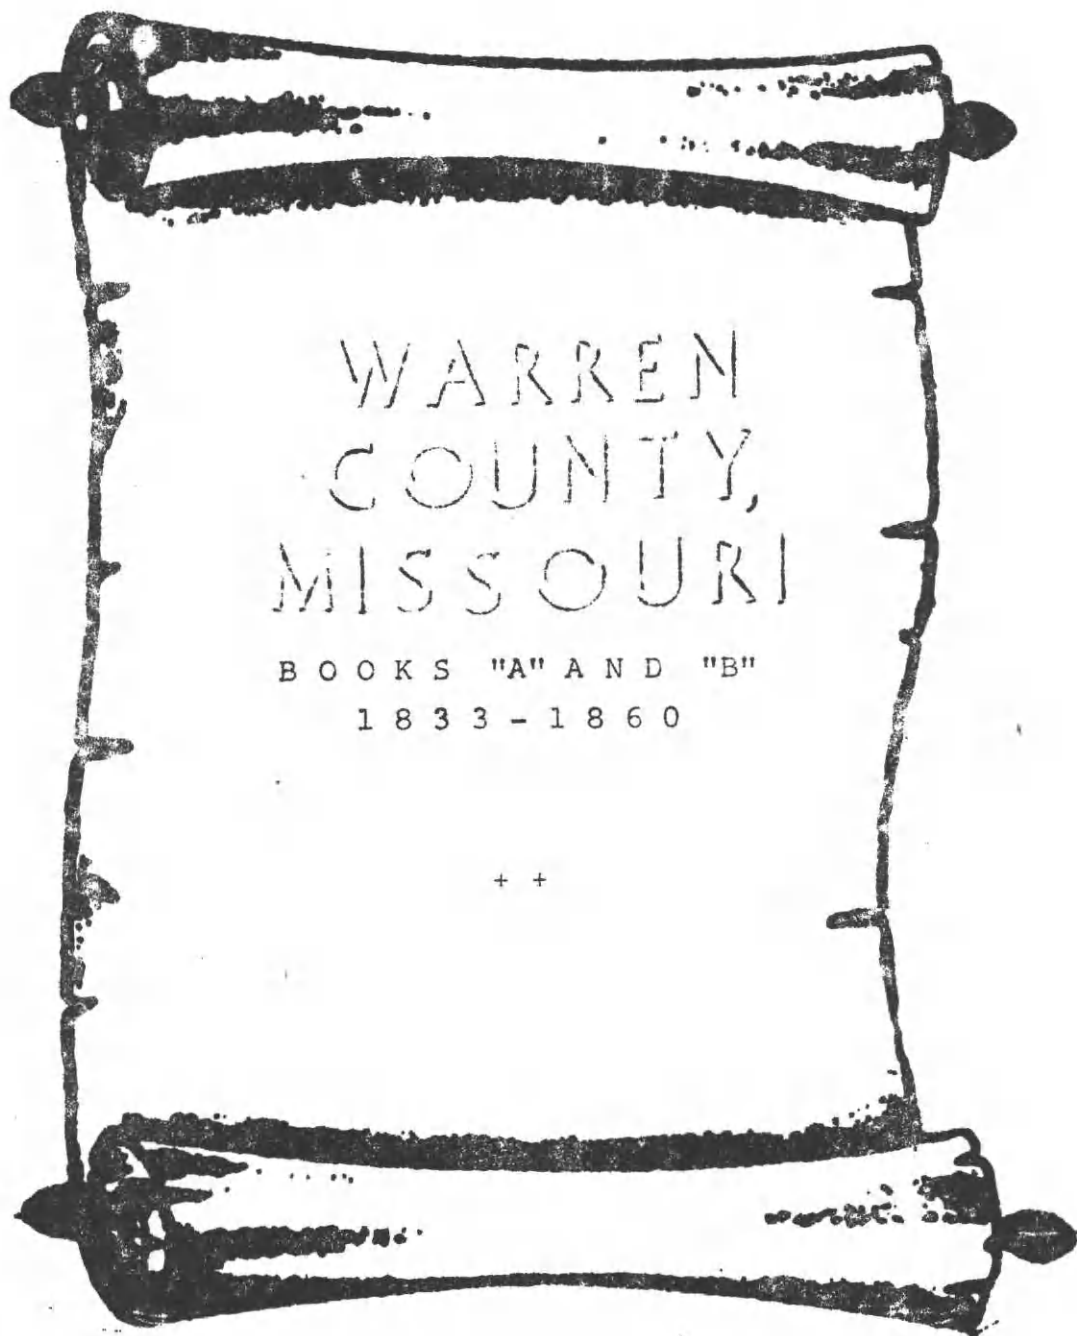 WARREN
COUNTY,
MISSOURI
BOOKS "A" AND "B"
1833-1860
+ +